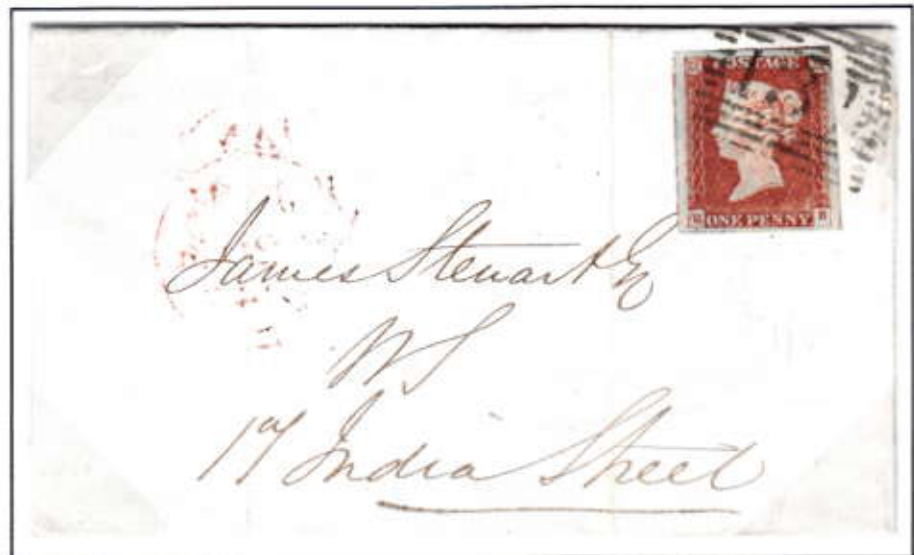 POSTAGE
ONE PENNY
James Stewart Esq
W S
17 India Street